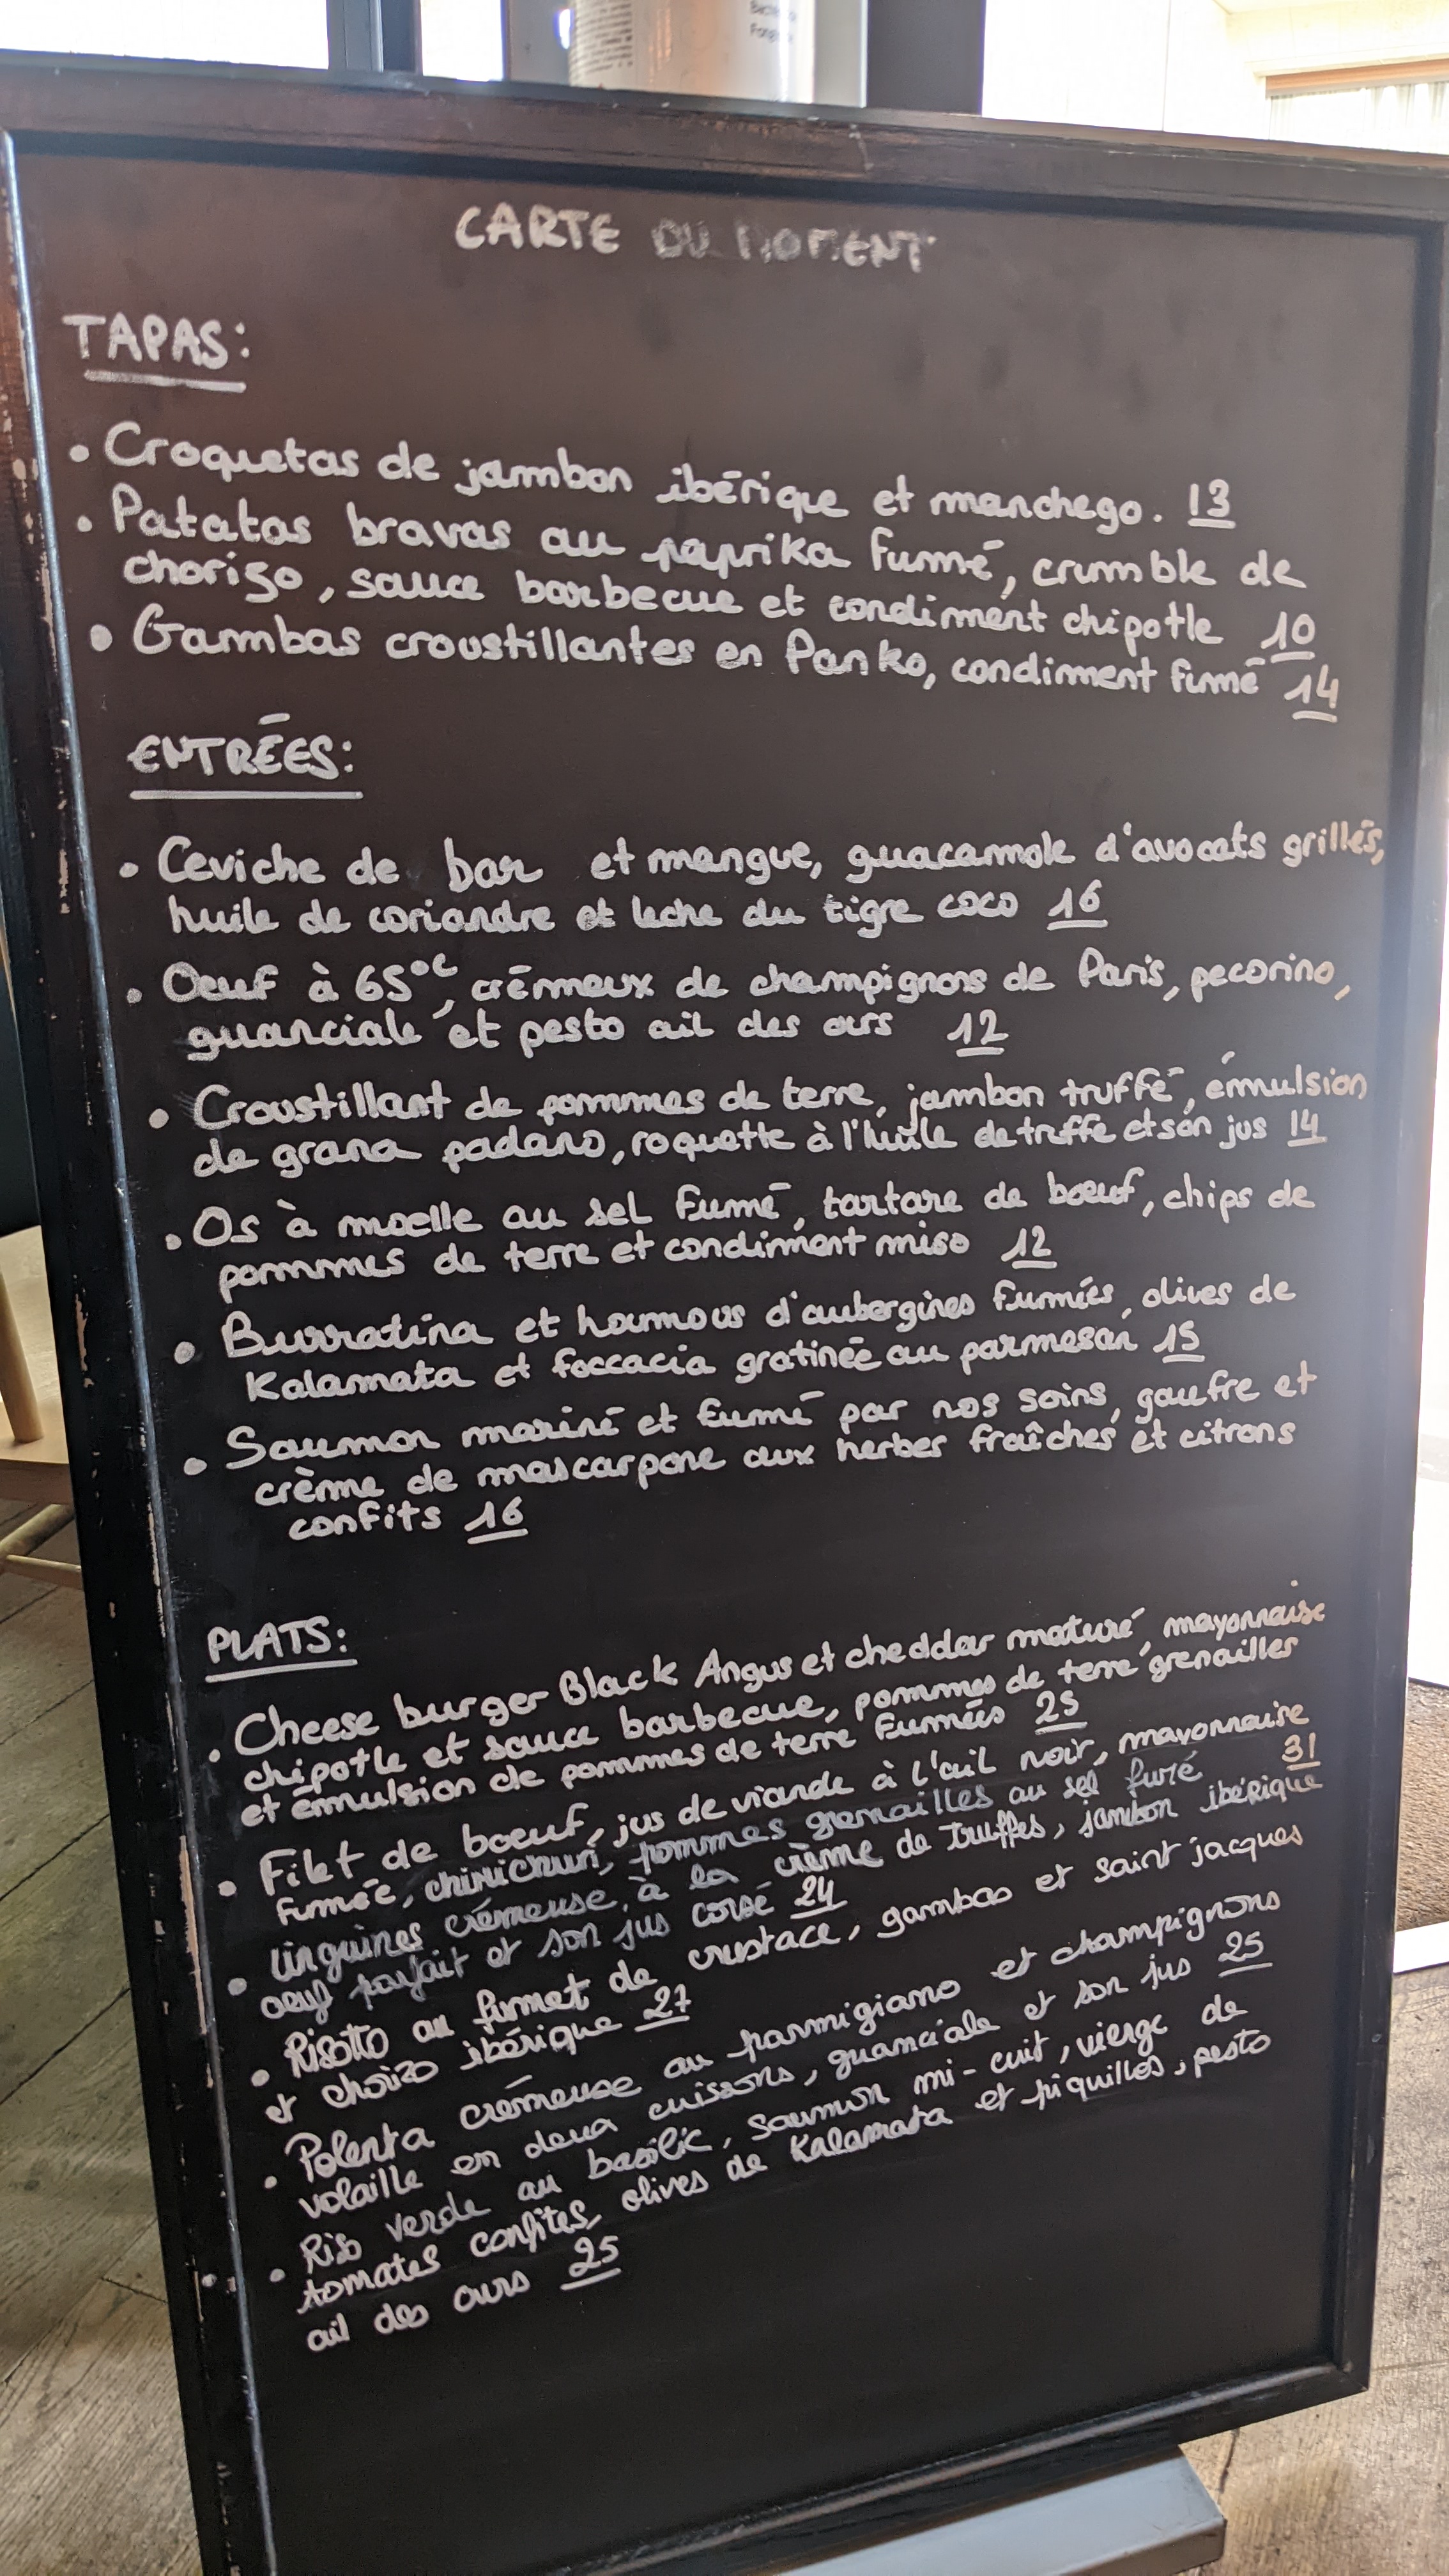 CARTE DU MOMENT
TAPAS:
• Croquetas de jambon ibérique et manchego. 13
• Patatas bravas au paprika fumé, crumble de
chorizo, sauce barbecue et condiment chipotle 10
• Gambas croustillantes en Panko, condiment fumé 14
ENTRÉES:
• Ceviche de bar et mangue, guacamole d'avocats grillés,
huile de coriandre et leche du tigre coco 16
• Oeuf à 65°C, crémeux de champignons de Paris, pecorino,
guanciale et pesto ail des ours 12
• Croustillant de pommes de terre, jambon truffé, émulsion
de grana padano, roquette à l'huile de truffe et son jus 14
• Os à moelle au sel fumé, tartare de boeuf, chips de
pommes de terre et condiment miso 12
• Burratina et houmous d'aubergines fumées, olives de
Kalamata et foccacia gratinée au parmesan 15
• Saumon mariné et fumé par nos soins, gaufre et
crème de mascarpone aux herbes fraîches et citrons
confits 16
PLATS:
• Cheese burger Black Angus et cheddar maturé, mayonnaise
chipotle et sauce barbecue, pommes de terre grenailles
et émulsion de pommes de terre fumées 25
• Filet de boeuf, jus de viande à l'ail noir, mayonnaise
fumée, chimichuri, pommes grenailles au sel fumé 31
• Linguines crémeuse à la crème de truffes, jambon ibérique
oeuf parfait et son jus corsé 24
• Risotto au fumet de crustace, gambas et saint jacques
et chorizo ibérique 27
• Polenta crémeuse au parmigiano et champignons
volaille en deux cuissons, guanciale et son jus 25
• Riso verde au basilic, saumon mi-cuit, vierge de
tomates confites, olives de Kalamata et piquillos, pesto
ail des ours 25